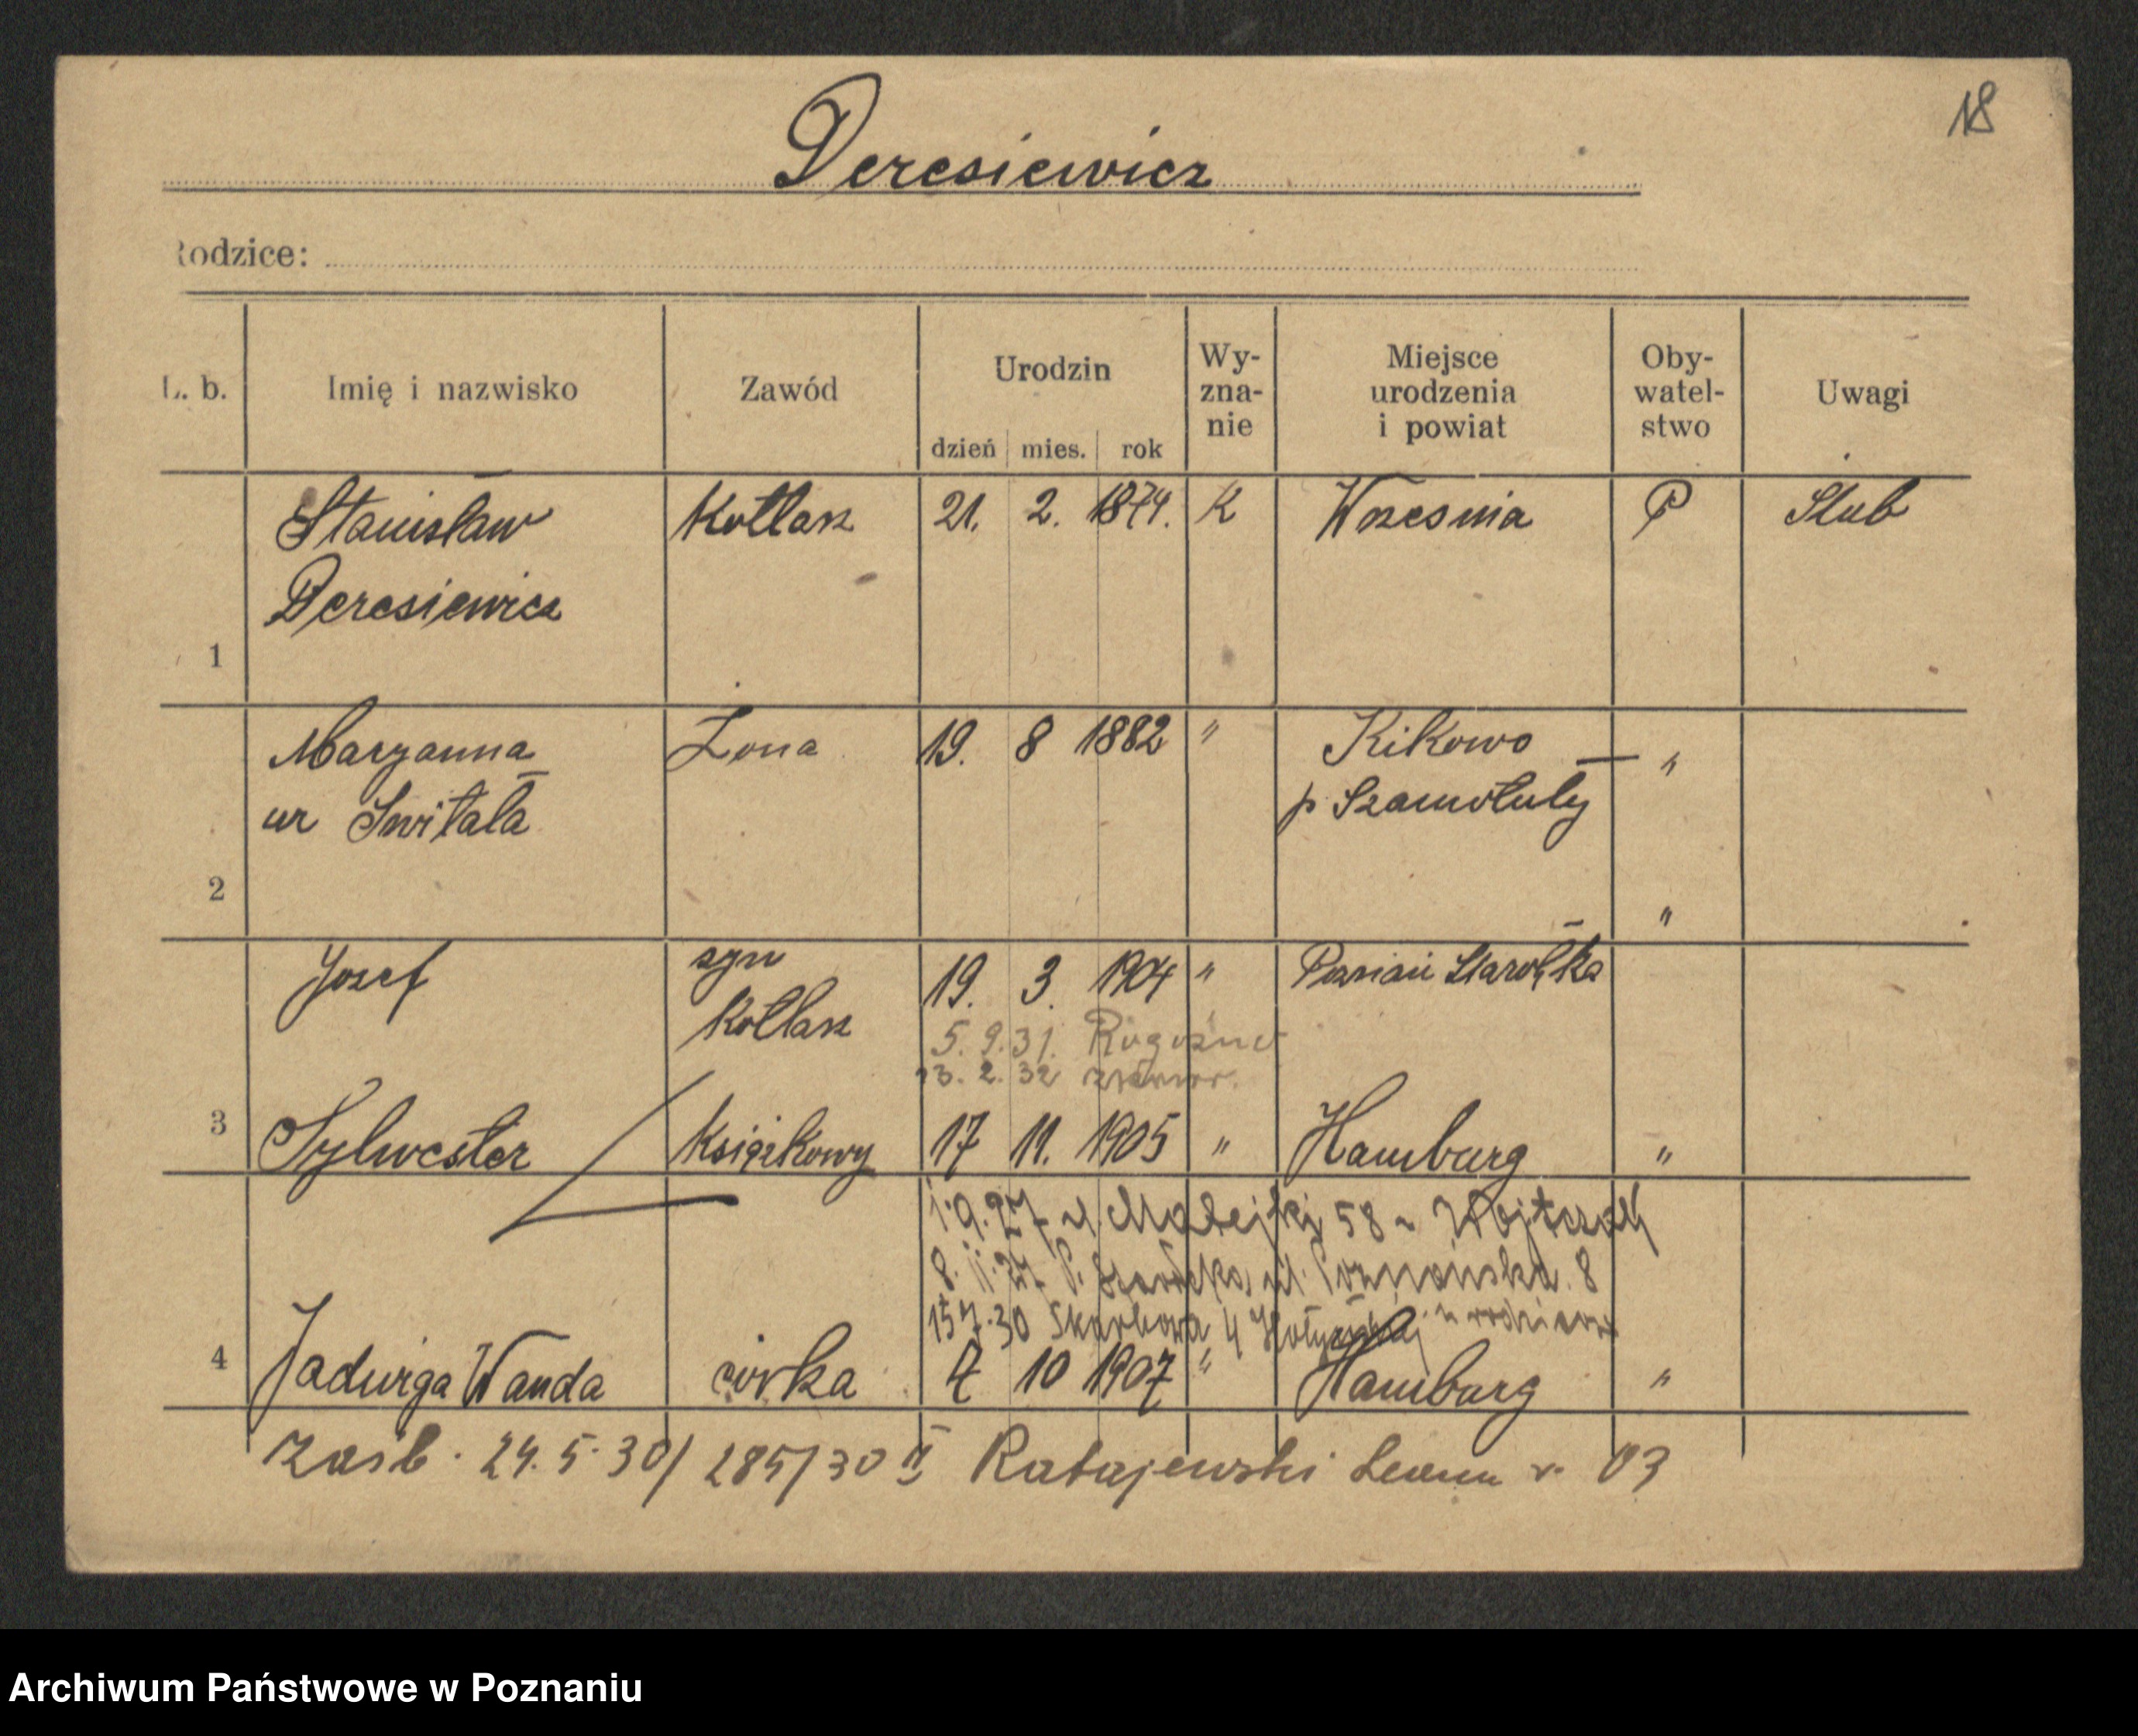 18
Deresiewicz
Rodzice:
L. b. Imię i nazwisko Zawód Urodzin dzień mies. rok Wy-zna-nie Miejsce urodzenia i powiat Oby-watel-stwo Uwagi
1 Stanisław Deresiewicz Kotlarz 21. 2. 1874. K Wrzesnia P Slub
2 Maryanna ur Switała Żona 19. 8 1882 " Kikowo p Szamotuły "
"
3 Jozef syn Kotlarz 19. 3. 1904 " Poznań Starołęka
5. 9. 31. Rogoźno
2. 32
Sylwester Książkowy 17 11. 1905 " Hamburg "
1.9.27 ul. Matejki 58
8. 11. 27 ul. Poznańska 8
15 7.30 Skarbowa 4
4 Jadwiga Wanda córka 10 1907 " Hamburg "
24. 5. 30/ 285/30 II Ratajewski 03
Archiwum Państwowe w Poznaniu